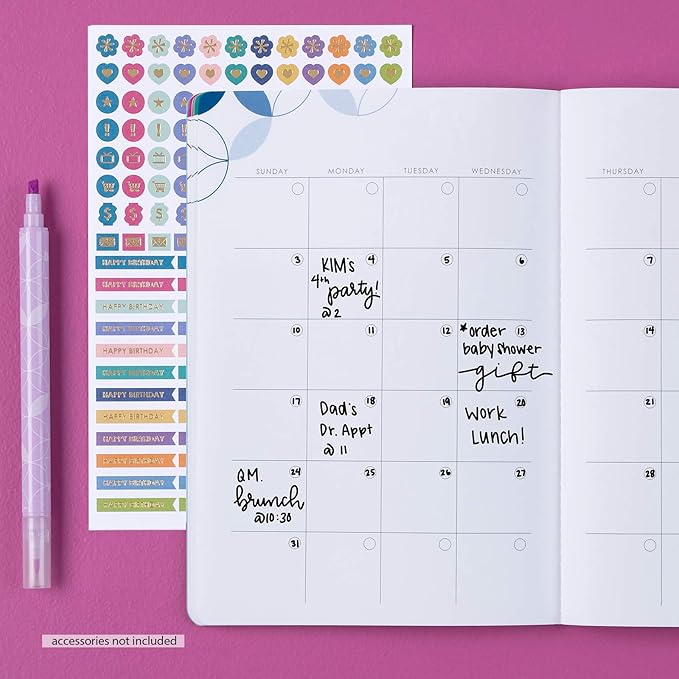 SUNDAY MONDAY TUESDAY WEDNESDAY THURSDAY
3 4 5 6 7
KIM's
4th party!
@ 2
10 11 12 13 14
*order
baby shower
gift
17 18 19 20 21
Dad's
Dr. Appt
@ 11
WORK
LUNCH!
24 25 26 27 28
QM.
brunch
@10:30
31
HAPPY BIRTHDAY
HAPPY BIRTHDAY
HAPPY BIRTHDAY
HAPPY BIRTHDAY
HAPPY BIRTHDAY
HAPPY BIRTHDAY
HAPPY BIRTHDAY
HAPPY BIRTHDAY
HAPPY BIRTHDAY
HAPPY BIRTHDAY
HAPPY BIRTHDAY
HAPPY BIRTHDAY
accessories not included